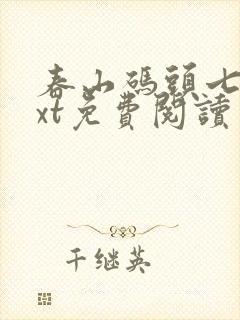 春山碼頭七
xt免費閱讀
千继英